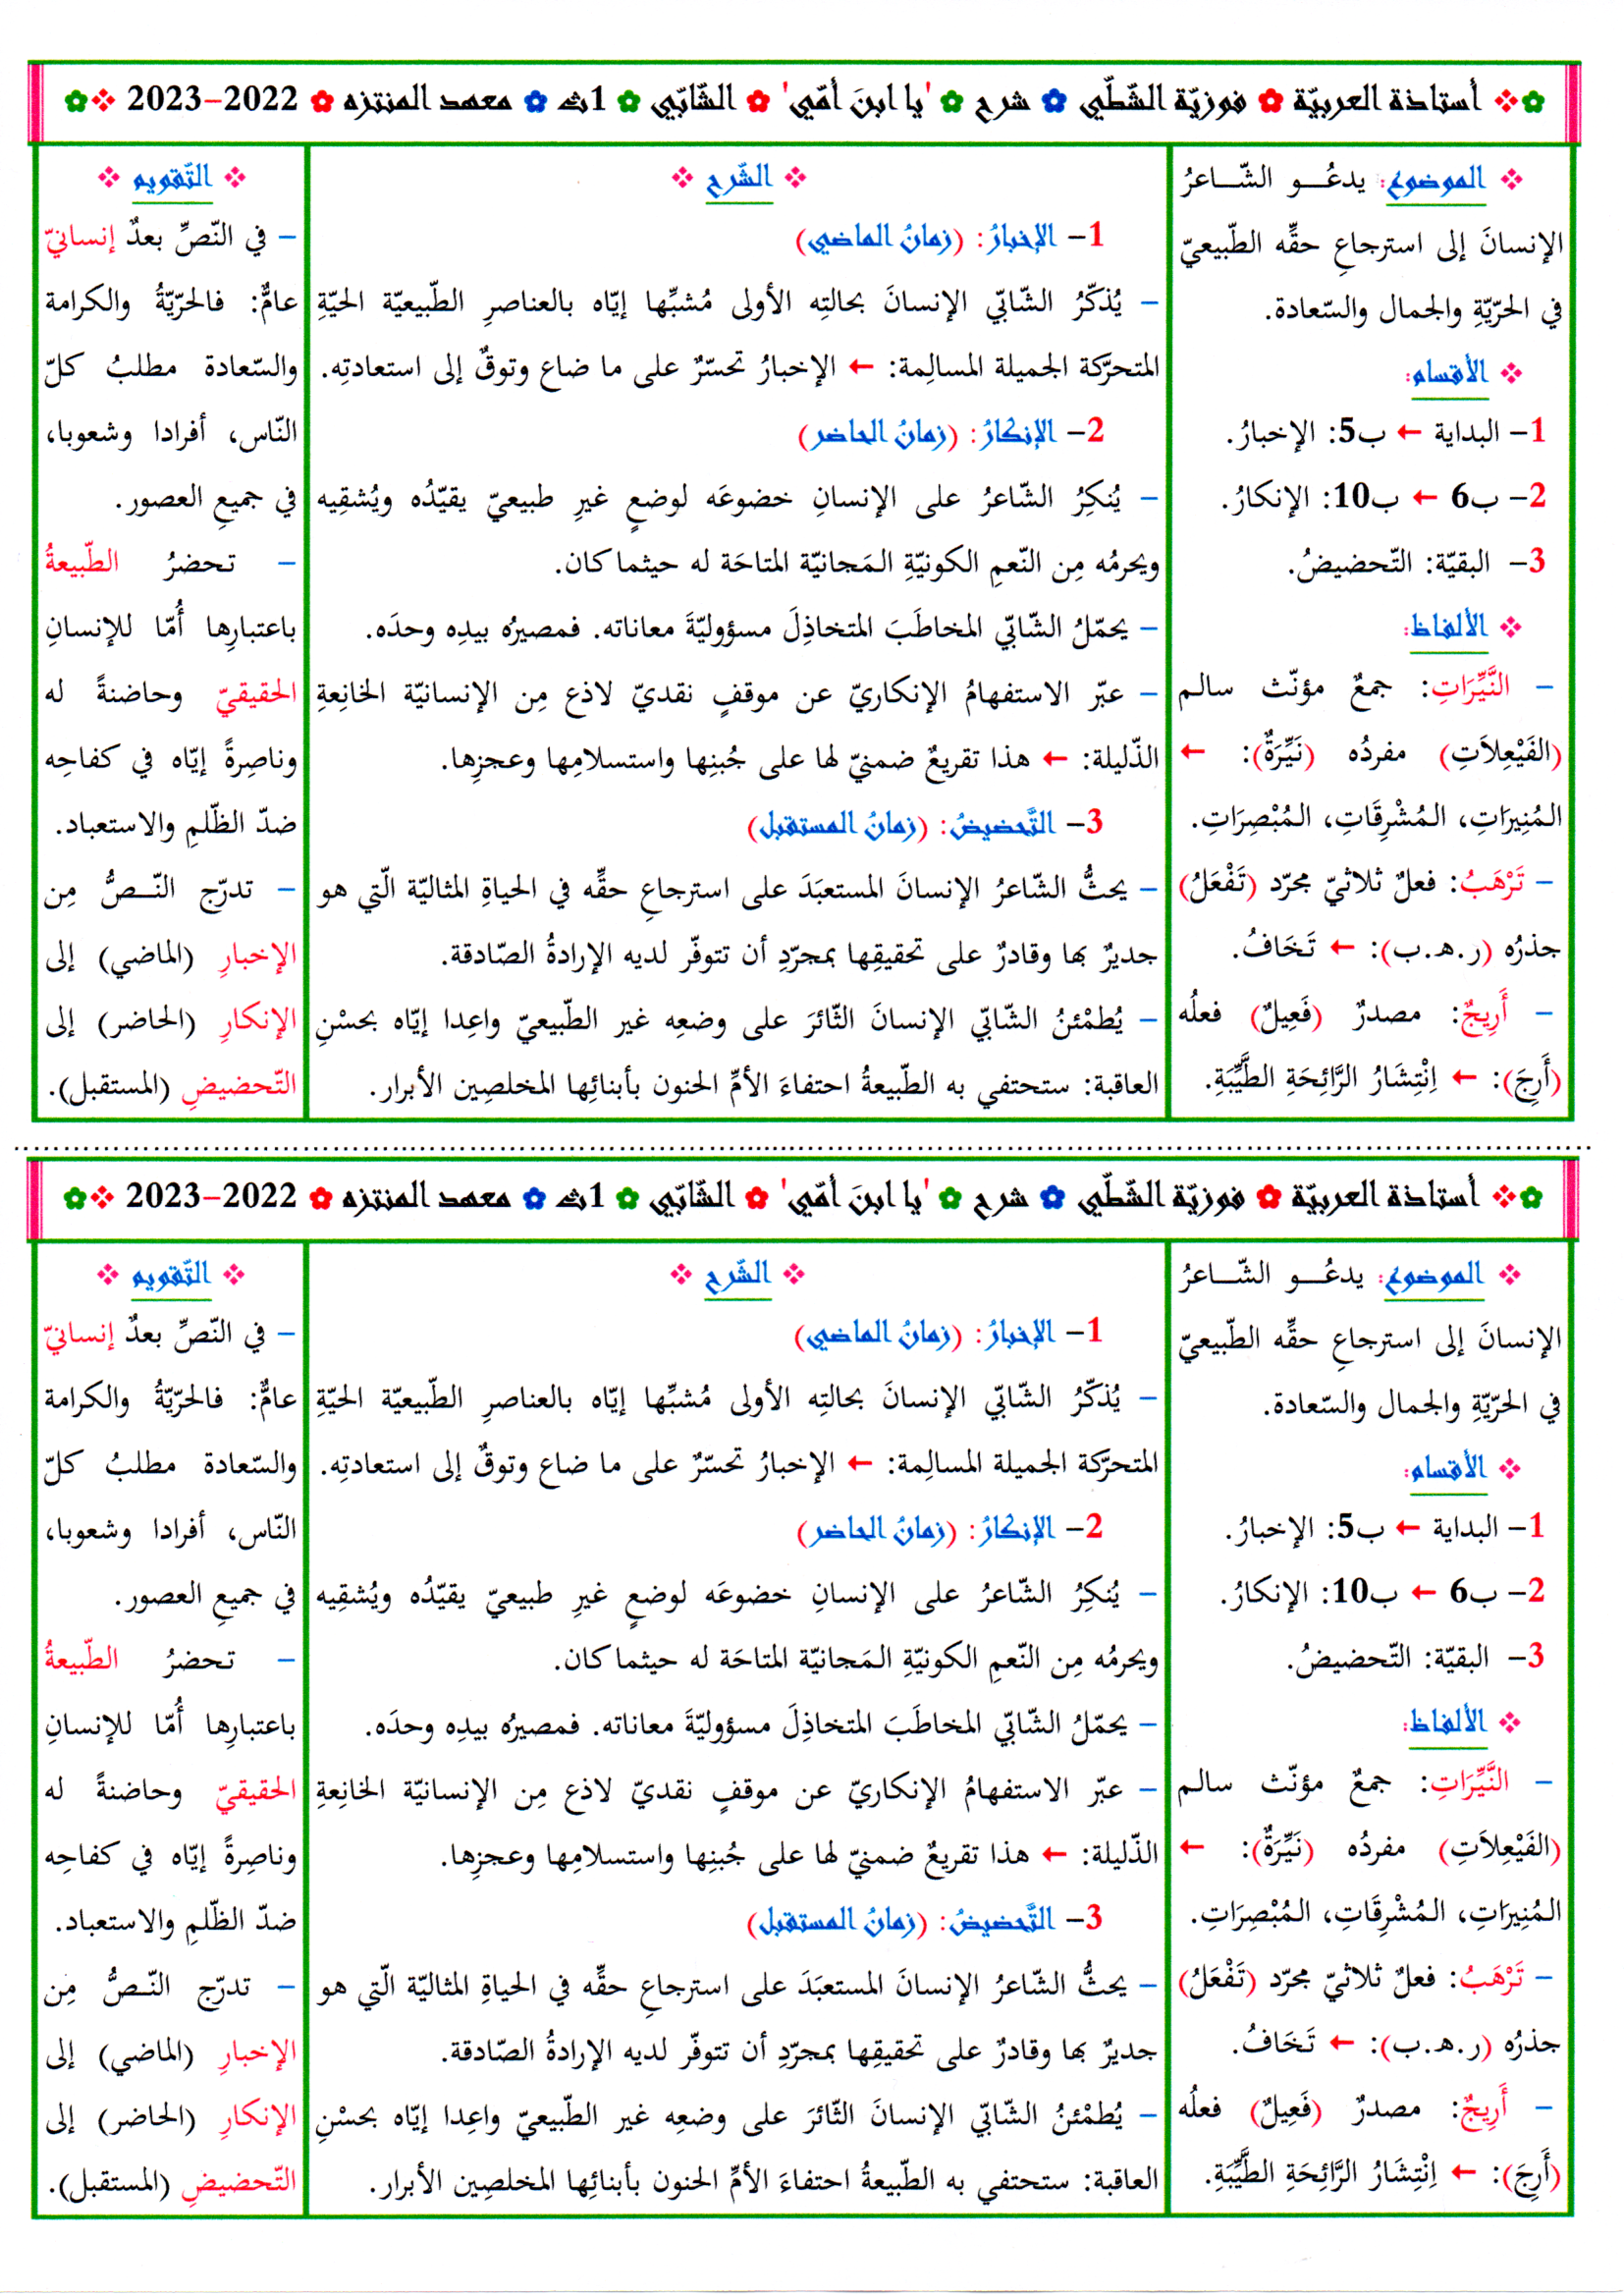 أستاذة العربيّة فوزيّة الشّطّي شرح 'يا ابنَ أمّي' الشّابّي 1ث معهد المنتزه 2022-2023
الموضوع: يدعُـو الشّـاعرُ
الإنسانَ إلى استرجاعِ حقّه الطّبيعيّ
في الحرّيّةِ والجمال والسّعادة.
الأقسام:
1- البداية ← ب5: الإخبارُ.
2- ب6 ← ب10: الإنكارُ.
3- البقيّة: التّحضيضُ.
الألفاظ:
- النَّيِّرَاتِ: جمعٌ مؤنّث سالم
(الفَيْعِلاَتِ) مفردُه (نَيِّرَةٌ): ←
المُنِيرَاتِ، المُشْرِقَاتِ، المُبْصِرَاتِ.
- تَرْهَبُ: فعلٌ ثلاثيّ مجرّد (تَفْعَلُ)
جذرُه (ر.ه.ب): ← تَخَافُ.
- أَرِيجٌ: مصدرٌ (فَعِيلٌ) فعلُه
(أَرِجَ): ← اِنْتِشَارُ الرَّائِحَةِ الطَّيِّبَةِ.
الشّرح
1- الإخبارُ: (زمانُ الماضي)
- يُذكّرُ الشّابّي الإنسانَ بحالتِه الأولى مُشبِّها إيّاه بالعناصرِ الطّبيعيّة الحيّةِ
المتحرّكة الجميلة المسالِمة: ← الإخبارُ تحسّرٌ على ما ضاع وتوقٌ إلى استعادتِه.
2- الإنكارُ: (زمانُ الحاضر)
- يُنكِرُ الشّاعرُ على الإنسانِ خضوعَه لوضعٍ غيرِ طبيعيّ يقيّدُه ويُشقِيه
ويحرمُه مِن النّعمِ الكونيّةِ المَجانيّة المتاحَة له حيثما كان.
- يحمّلُ الشّابّي المخاطَبَ المتخاذِلَ مسؤوليّةَ معاناته. فمصيرُه بيدِه وحدَه.
- عبّر الاستفهامُ الإنكاريّ عن موقفٍ نقديّ لاذع مِن الإنسانيّة الخانِعةِ
الذّليلة: ← هذا تقريعٌ ضمنيّ لها على جُبنِها واستسلامِها وعجزِها.
3- التَّحضيضُ: (زمانُ المستقبل)
- يحثُّ الشّاعرُ الإنسانَ المستعبَدَ على استرجاعِ حقِّه في الحياةِ المثاليّة الّتي هو
جديرٌ بها وقادرٌ على تحقيقِها بمجرّدِ أن تتوفّر لديه الإرادةُ الصّادقة.
- يُطمْئنُ الشّابّي الإنسانَ الثّائرَ على وضعِه غير الطّبيعيّ واعِدا إيّاه بحسْنِ
العاقبة: ستحتفي به الطّبيعةُ احتفاءَ الأمِّ الحنون بأبنائِها المخلصِين الأبرار.
التّقويم
- في النّصِّ بعدٌ إنسانيّ
عامٌّ: فالحرّيّةُ والكرامة
والسّعادة مطلبُ كلّ
النّاس، أفرادا وشعوبا،
في جميعِ العصور.
- تحضرُ الطّبيعةُ
باعتبارِها أُمّا للإنسانِ
الحقيقيّ وحاضنةً له
وناصِرةً إيّاه في كفاحِه
ضدّ الظّلمِ والاستعباد.
- تدرّج النّـصُّ مِن
الإخبارِ (الماضي) إلى
الإنكارِ (الحاضر) إلى
التّحضيضِ (المستقبل).
أستاذة العربيّة فوزيّة الشّطّي شرح 'يا ابنَ أمّي' الشّابّي 1ث معهد المنتزه 2022-2023
الموضوع: يدعُـو الشّـاعرُ
الإنسانَ إلى استرجاعِ حقّه الطّبيعيّ
في الحرّيّةِ والجمال والسّعادة.
الأقسام:
1- البداية ← ب5: الإخبارُ.
2- ب6 ← ب10: الإنكارُ.
3- البقيّة: التّحضيضُ.
الألفاظ:
- النَّيِّرَاتِ: جمعٌ مؤنّث سالم
(الفَيْعِلاَتِ) مفردُه (نَيِّرَةٌ): ←
المُنِيرَاتِ، المُشْرِقَاتِ، المُبْصِرَاتِ.
- تَرْهَبُ: فعلٌ ثلاثيّ مجرّد (تَفْعَلُ)
جذرُه (ر.ه.ب): ← تَخَافُ.
- أَرِيجٌ: مصدرٌ (فَعِيلٌ) فعلُه
(أَرِجَ): ← اِنْتِشَارُ الرَّائِحَةِ الطَّيِّبَةِ.
الشّرح
1- الإخبارُ: (زمانُ الماضي)
- يُذكّرُ الشّابّي الإنسانَ بحالتِه الأولى مُشبِّها إيّاه بالعناصرِ الطّبيعيّة الحيّةِ
المتحرّكة الجميلة المسالِمة: ← الإخبارُ تحسّرٌ على ما ضاع وتوقٌ إلى استعادتِه.
2- الإنكارُ: (زمانُ الحاضر)
- يُنكِرُ الشّاعرُ على الإنسانِ خضوعَه لوضعٍ غيرِ طبيعيّ يقيّدُه ويُشقِيه
ويحرمُه مِن النّعمِ الكونيّةِ المَجانيّة المتاحَة له حيثما كان.
- يحمّلُ الشّابّي المخاطَبَ المتخاذِلَ مسؤوليّةَ معاناته. فمصيرُه بيدِه وحدَه.
- عبّر الاستفهامُ الإنكاريّ عن موقفٍ نقديّ لاذع مِن الإنسانيّة الخانِعةِ
الذّليلة: ← هذا تقريعٌ ضمنيّ لها على جُبنِها واستسلامِها وعجزِها.
3- التَّحضيضُ: (زمانُ المستقبل)
- يحثُّ الشّاعرُ الإنسانَ المستعبَدَ على استرجاعِ حقِّه في الحياةِ المثاليّة الّتي هو
جديرٌ بها وقادرٌ على تحقيقِها بمجرّدِ أن تتوفّر لديه الإرادةُ الصّادقة.
- يُطمْئنُ الشّابّي الإنسانَ الثّائرَ على وضعِه غير الطّبيعيّ واعِدا إيّاه بحسْنِ
العاقبة: ستحتفي به الطّبيعةُ احتفاءَ الأمِّ الحنون بأبنائِها المخلصِين الأبرار.
التّقويم
- في النّصِّ بعدٌ إنسانيّ
عامٌّ: فالحرّيّةُ والكرامة
والسّعادة مطلبُ كلّ
النّاس، أفرادا وشعوبا،
في جميعِ العصور.
- تحضرُ الطّبيعةُ
باعتبارِها أُمّا للإنسانِ
الحقيقيّ وحاضنةً له
وناصِرةً إيّاه في كفاحِه
ضدّ الظّلمِ والاستعباد.
- تدرّج النّـصُّ مِن
الإخبارِ (الماضي) إلى
الإنكارِ (الحاضر) إلى
التّحضيضِ (المستقبل).